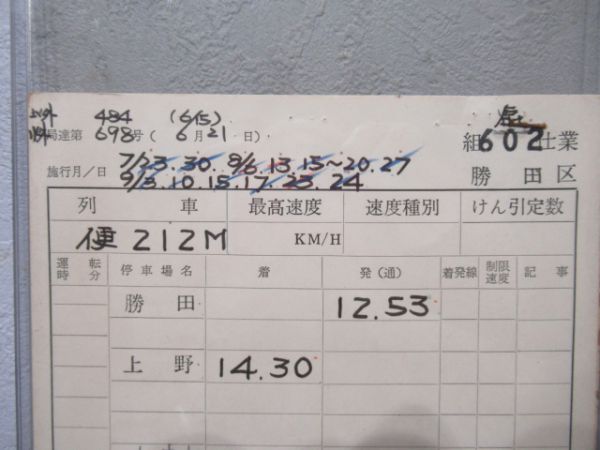 484 (6/15)
局達第 698号( 6月21日)
組602仕業
施行月/日 7/23.30. 8/6.13.15~20.27
9/3.10.15.17.23.24
勝田区
列車 最高速度 速度種別 けん引定数
便212M KM/H
運転時分 停車場名 着 発(通) 着発線 制限速度 記事
勝田 12.53
上野 14.30